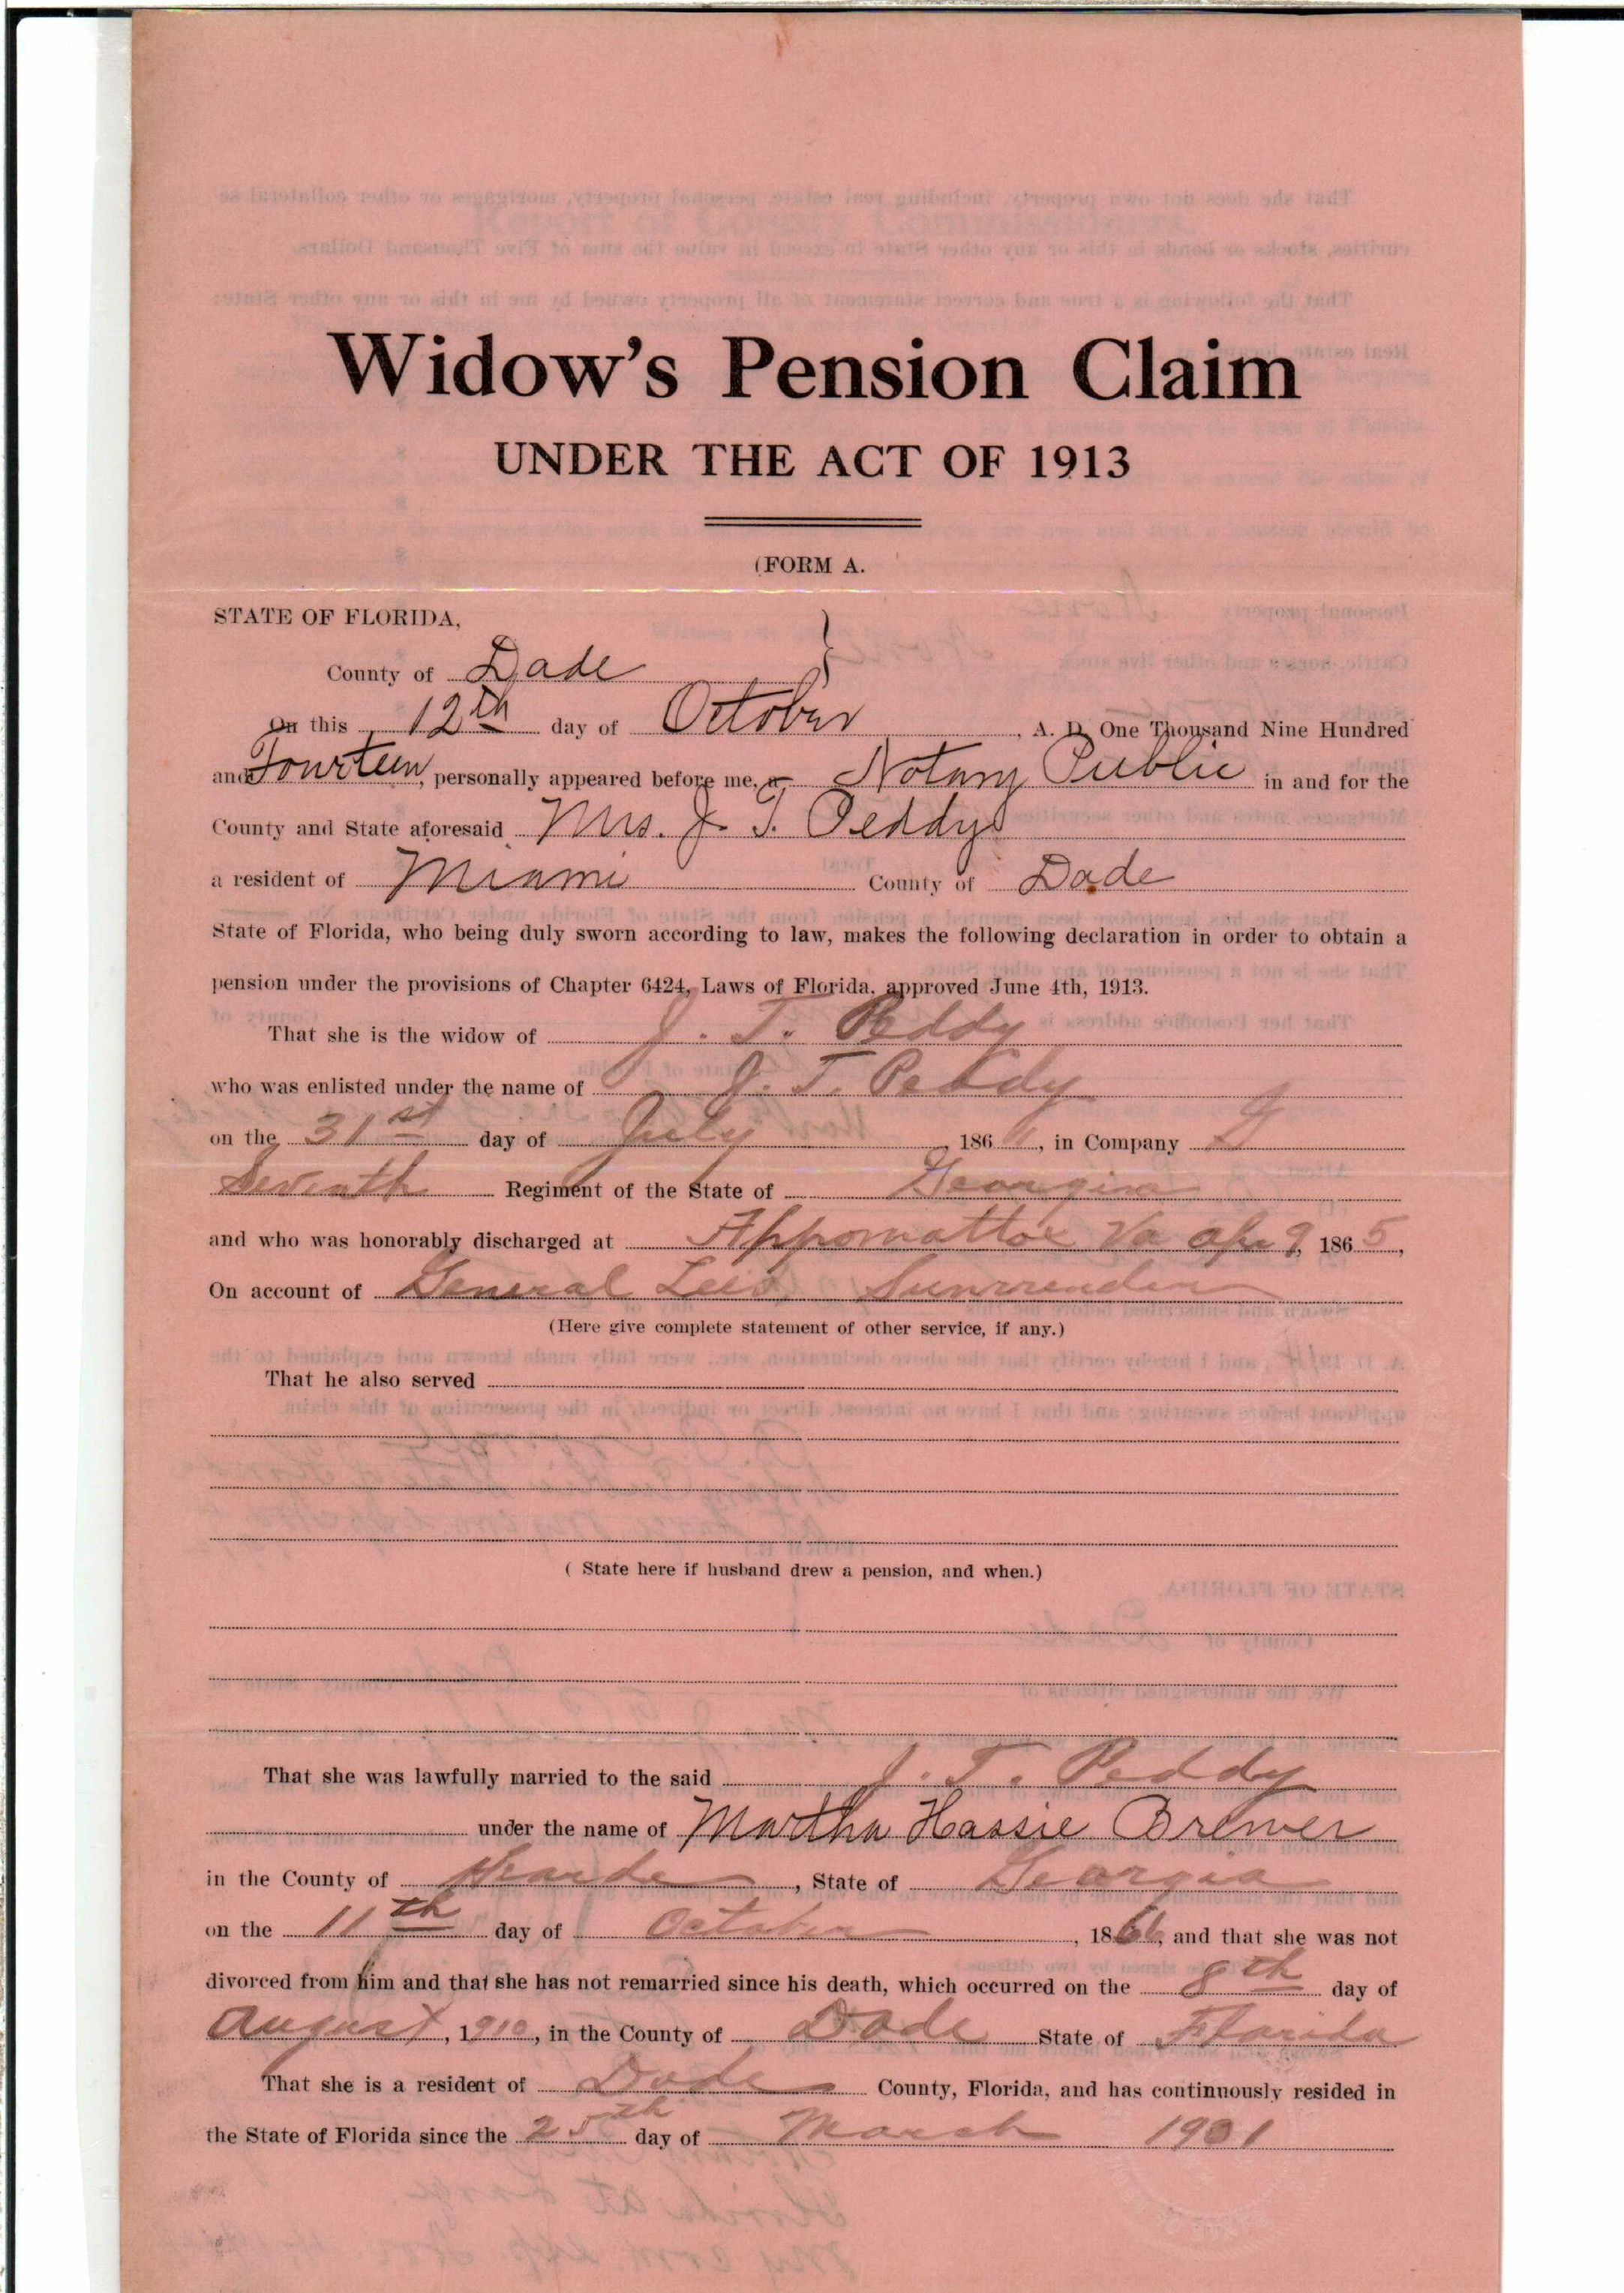 Widow's Pension Claim
UNDER THE ACT OF 1913
(FORM A.
STATE OF FLORIDA,
County of Dade
On this 12th day of October, A. D. One Thousand Nine Hundred
and Fourteen, personally appeared before me, a Notary Public in and for the
County and State aforesaid Mrs. J. T. Peddy
a resident of Miami County of Dade
State of Florida, who being duly sworn according to law, makes the following declaration in order to obtain a
pension under the provisions of Chapter 6424, Laws of Florida, approved June 4th, 1913.
That she is the widow of J. T. Peddy
who was enlisted under the name of J. T. Peddy
on the 31st day of July, 186, in Company
Seventh Regiment of the State of Georgia
and who was honorably discharged at Appomattox Va Apr 9, 1865,
On account of General Lees Surrender
(Here give complete statement of other service, if any.)
That he also served
( State here if husband drew a pension, and when.)
That she was lawfully married to the said J. T. Peddy
under the name of Martha Hassie Brewer
in the County of , State of Georgia
on the 11th day of October, 1866, and that she was not
divorced from him and that she has not remarried since his death, which occurred on the 8th day of
August, 1910, in the County of Dade State of Florida
That she is a resident of Dade County, Florida, and has continuously resided in
the State of Florida since the 25th day of March 1901